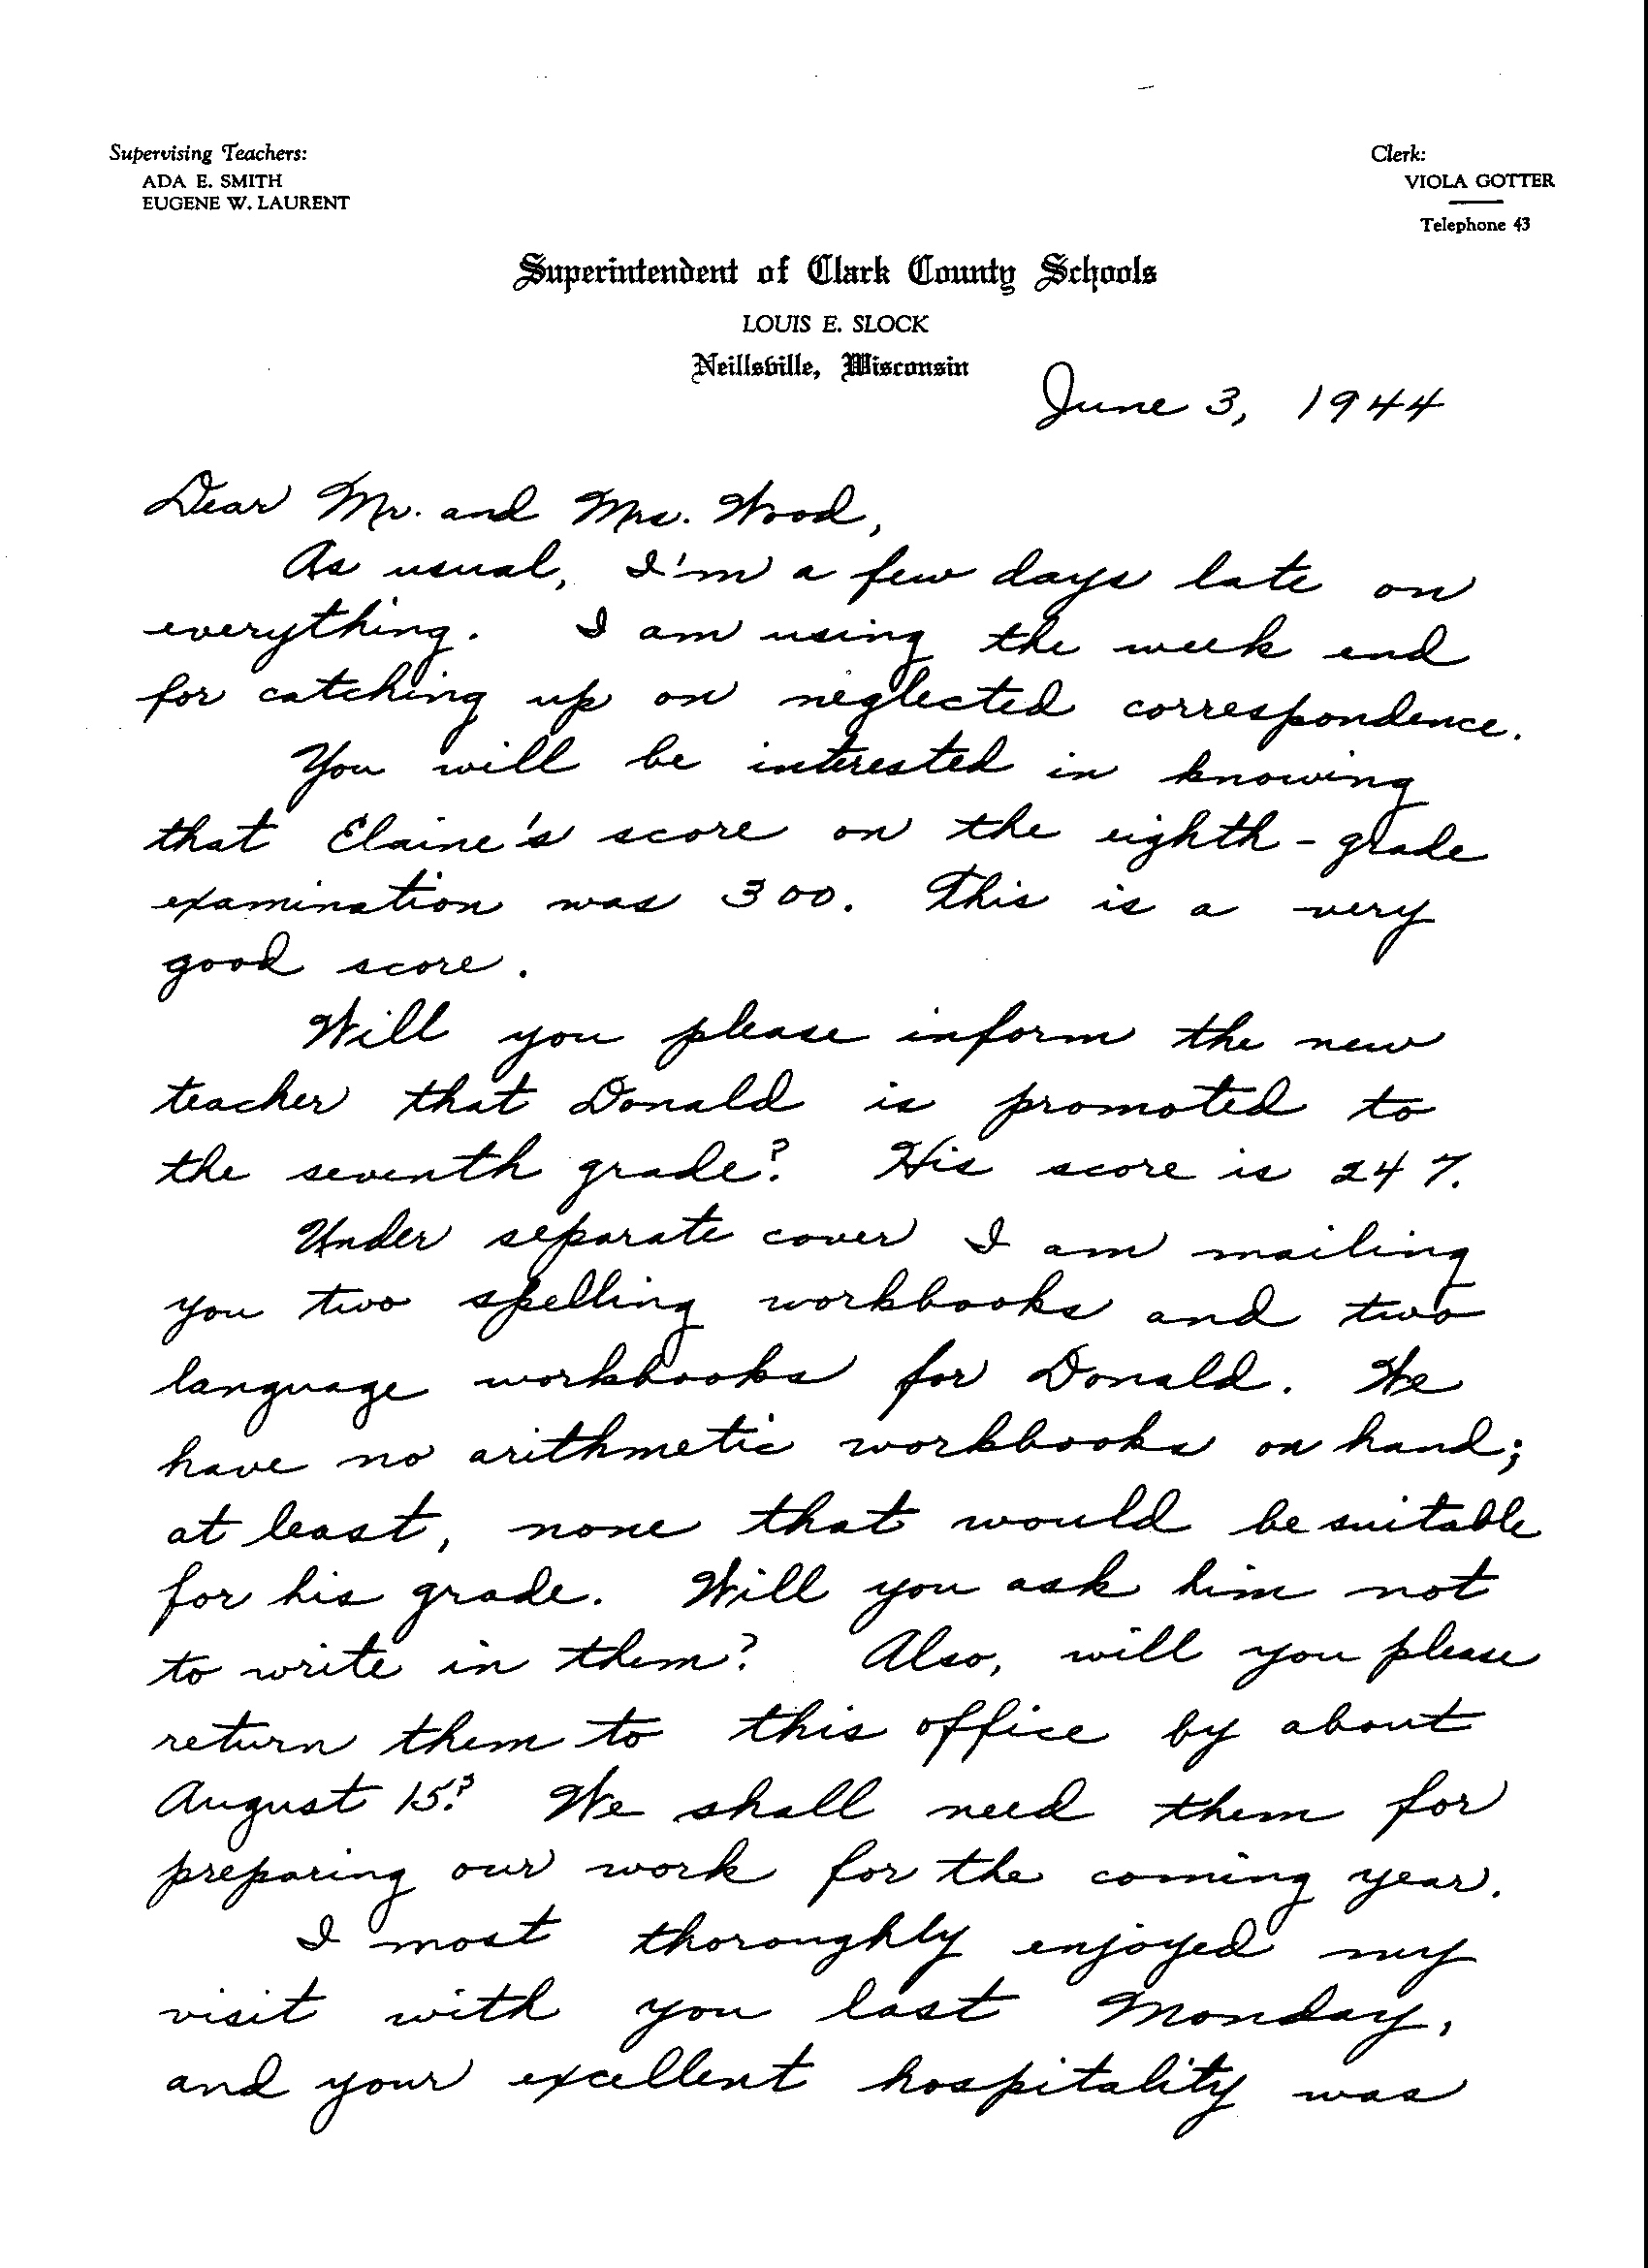 Supervising Teachers:
ADA E. SMITH
EUGENE W. LAURENT
Clerk:
VIOLA GOTTER
Telephone 43
Superintendent of Clark County Schools
LOUIS E. SLOCK
Neillsville, Wisconsin
June 3, 1944
Dear Mr. and Mrs. Wood,
As usual, I'm a few days late on
everything. I am using the week end
for catching up on neglected correspondence.
You will be interested in knowing
that Elaine's score on the eighth-grade
examination was 300. This is a very
good score.
Will you please inform the new
teacher that Donald is promoted to
the seventh grade? His score is 247.
Under separate cover I am mailing
you two spelling workbooks and two
language workbooks for Donald. We
have no arithmetic workbooks on hand;
at least, none that would be suitable
for his grade. Will you ask him not
to write in them? Also, will you please
return them to this office by about
August 15? We shall need them for
preparing our work for the coming year.
I most thoroughly enjoyed my
visit with you last Monday,
and your excellent hospitality was